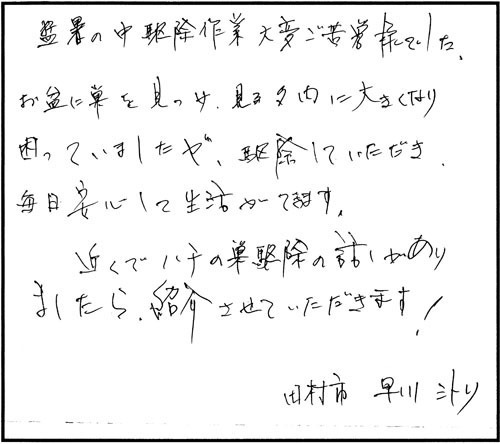 猛暑の中駆除作業大変ご苦労様でした。
お盆に巣を見つけ、見る々内に大きくなり
困っていましたが、駆除していただき、
毎日安心して生活ができます。
近くでハチの巣駆除の話しがあり
ましたら、紹介させていただきます!
田村市 早川 ミトリ